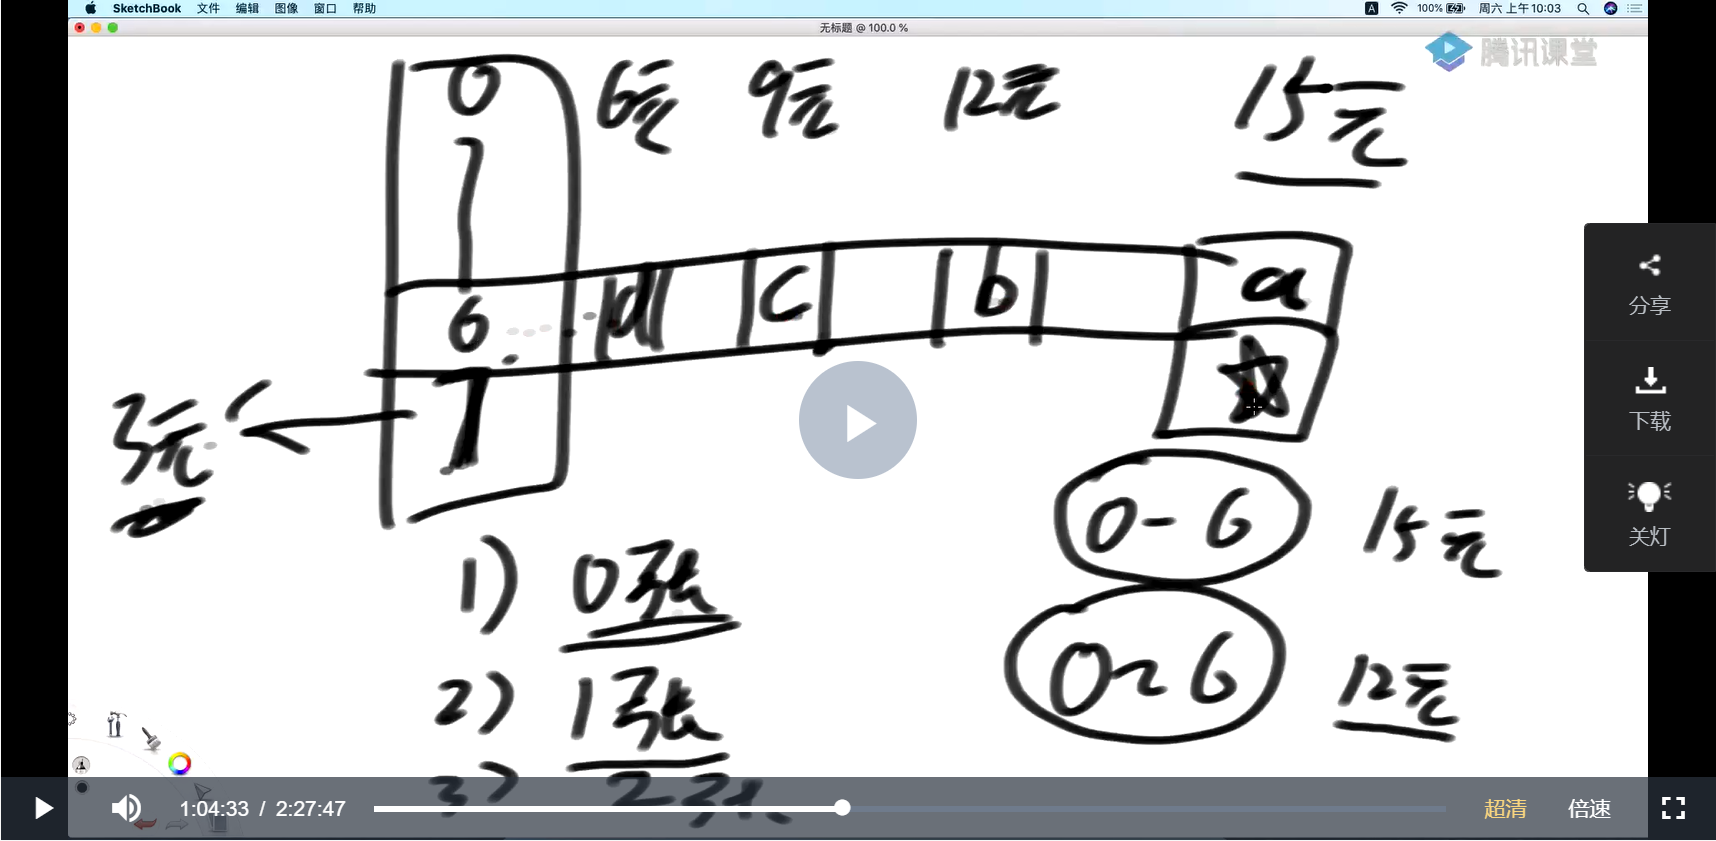 SketchBook 文件 编辑 图像 窗口 帮助 A 100% 周六 上午10:03
无标题 @ 100.0 %
腾讯课堂
0 6元 9元 12元 15元
6 d c b a
7
3元
0-6 15元
1) 0张
0~6 12元
2) 1张
3) 2张
分享
下载
关灯
1:04:33 / 2:27:47 超清 倍速